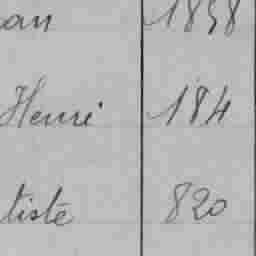 an 1858
Henri 184
tiste 820